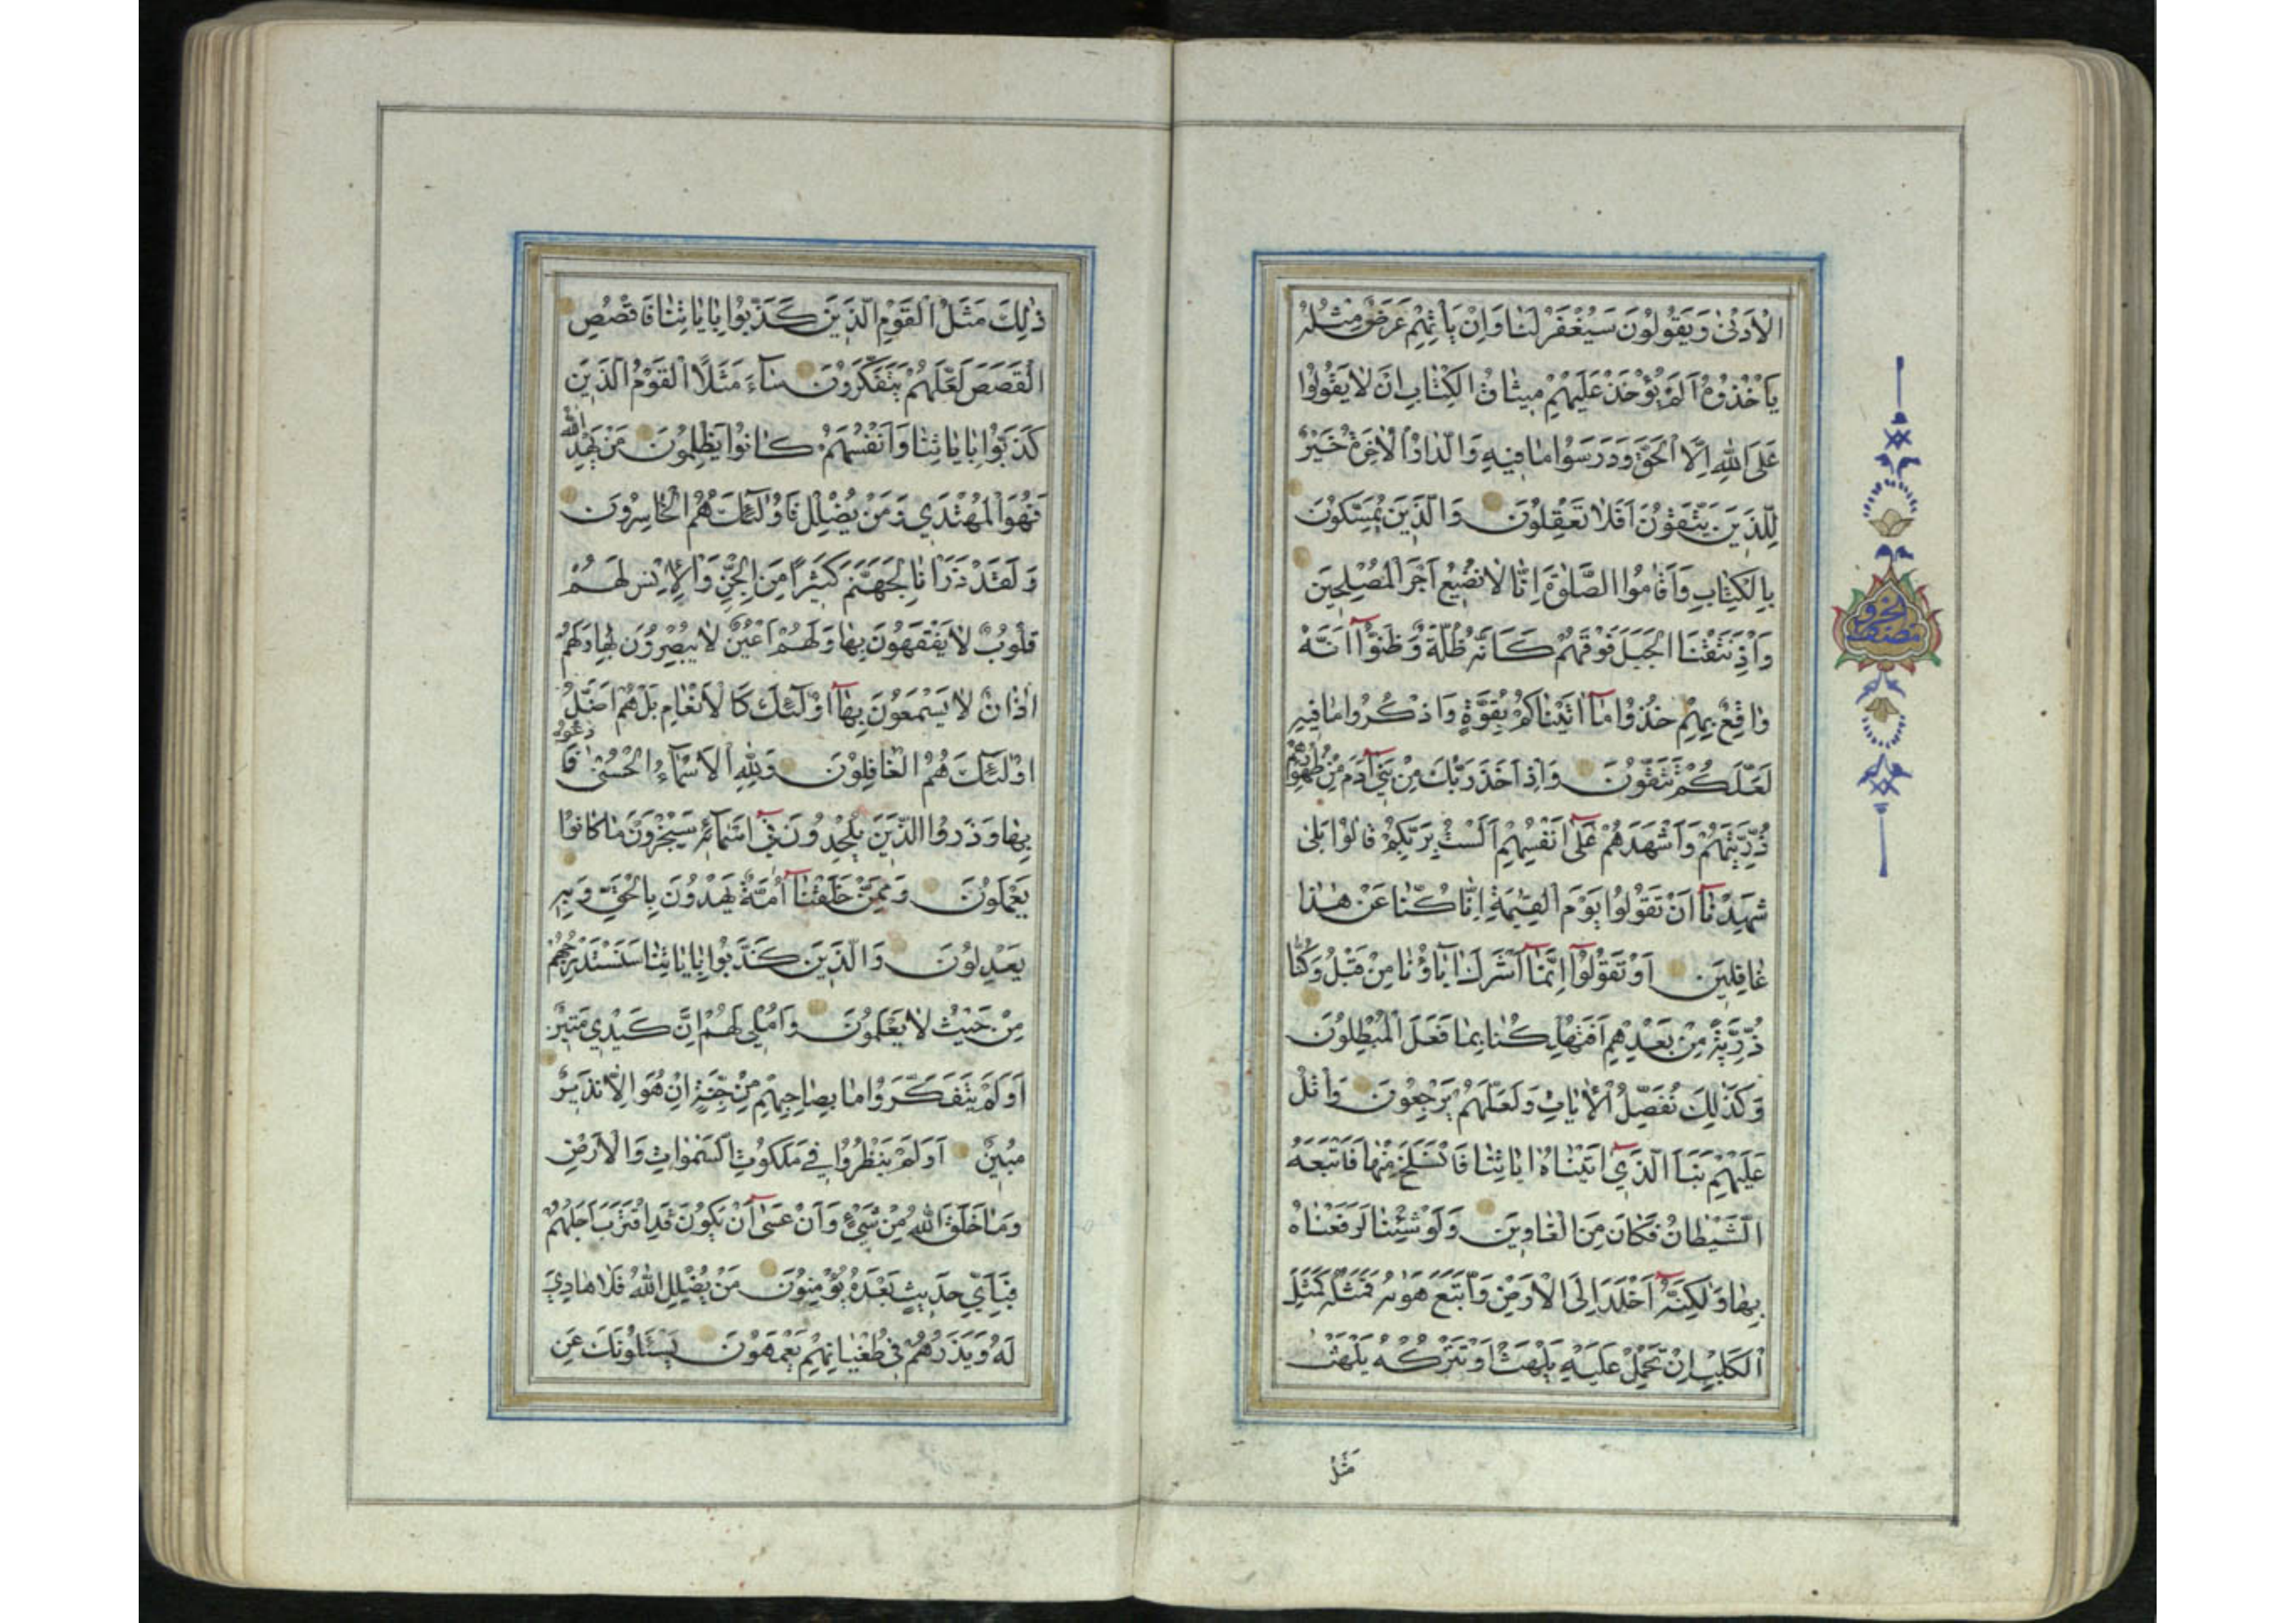 الْاَدْنٰى وَيَقُولُونَ سَيُغْفَرُ لَنَا وَاِنْ يَاْتِهِمْ عَرَضٌ مِثْلُهُ
يَاْخُذُوهُ اَلَمْ يُؤْخَذْ عَلَيْهِمْ مِيثَاقُ الْكِتَابِ اَنْ لَا يَقُولُوا
عَلَى اللّٰهِ اِلَّا الْحَقَّ وَدَرَسُوا مَا فِيهِ وَالدَّارُ الْاٰخِرَةُ خَيْرٌ
لِلَّذِينَ يَتَّقُونَ اَفَلَا تَعْقِلُونَ وَالَّذِينَ يُمَسِّكُونَ
بِالْكِتَابِ وَاَقَامُوا الصَّلٰوةَ اِنَّا لَا نُضِيعُ اَجْرَ الْمُصْلِحِينَ
وَاِذْ نَتَقْنَا الْجَبَلَ فَوْقَهُمْ كَاَنَّهُ ظُلَّةٌ وَظَنُّوٓا اَنَّهُ
وَاقِعٌ بِهِمْ خُذُوا مَآ اٰتَيْنَاكُمْ بِقُوَّةٍ وَاذْكُرُوا مَا فِيهِ
لَعَلَّكُمْ تَتَّقُونَ وَاِذْ اَخَذَ رَبُّكَ مِنْ بَنِىٓ اٰدَمَ مِنْ ظُهُورِهِمْ
ذُرِّيَّتَهُمْ وَاَشْهَدَهُمْ عَلٰٓى اَنْفُسِهِمْ اَلَسْتُ بِرَبِّكُمْ قَالُوا بَلٰى
شَهِدْنَآ اَنْ تَقُولُوا يَوْمَ الْقِيٰمَةِ اِنَّا كُنَّا عَنْ هٰذَا
غَافِلِينَ اَوْ تَقُولُوٓا اِنَّمَآ اَشْرَكَ اٰبَآؤُنَا مِنْ قَبْلُ وَكُنَّا
ذُرِّيَّةً مِنْ بَعْدِهِمْ اَفَتُهْلِكُنَا بِمَا فَعَلَ الْمُبْطِلُونَ
وَكَذٰلِكَ نُفَصِّلُ الْاٰيَاتِ وَلَعَلَّهُمْ يَرْجِعُونَ وَاتْلُ
عَلَيْهِمْ نَبَاَ الَّذِىٓ اٰتَيْنَاهُ اٰيَاتِنَا فَانْسَلَخَ مِنْهَا فَاَتْبَعَهُ
الشَّيْطَانُ فَكَانَ مِنَ الْغَاوِينَ وَلَوْ شِئْنَا لَرَفَعْنَاهُ
بِهَا وَلٰكِنَّهُٓ اَخْلَدَ اِلَى الْاَرْضِ وَاتَّبَعَ هَوٰيهُ فَمَثَلُهُ كَمَثَلِ
الْكَلْبِ اِنْ تَحْمِلْ عَلَيْهِ يَلْهَثْ اَوْ تَتْرُكْهُ يَلْهَثْ
مَثَلُ
ذٰلِكَ مَثَلُ الْقَوْمِ الَّذِينَ كَذَّبُوا بِاٰيَاتِنَا فَاقْصُصِ
الْقَصَصَ لَعَلَّهُمْ يَتَفَكَّرُونَ سَآءَ مَثَلًا الْقَوْمُ الَّذِينَ
كَذَّبُوا بِاٰيَاتِنَا وَاَنْفُسَهُمْ كَانُوا يَظْلِمُونَ مَنْ يَهْدِ اللّٰهُ
فَهُوَ الْمُهْتَدِي وَمَنْ يُضْلِلْ فَاُولٰئِكَ هُمُ الْخَاسِرُونَ
وَلَقَدْ ذَرَاْنَا لِجَهَنَّمَ كَثِيرًا مِنَ الْجِنِّ وَالْاِنْسِ لَهُمْ
قُلُوبٌ لَا يَفْقَهُونَ بِهَا وَلَهُمْ اَعْيُنٌ لَا يُبْصِرُونَ بِهَا وَلَهُمْ
اٰذَانٌ لَا يَسْمَعُونَ بِهَآ اُولٰئِكَ كَالْاَنْعَامِ بَلْ هُمْ اَضَلُّ
اُولٰئِكَ هُمُ الْغَافِلُونَ وَلِلّٰهِ الْاَسْمَآءُ الْحُسْنٰى فَادْعُوهُ
بِهَا وَذَرُوا الَّذِينَ يُلْحِدُونَ فِىٓ اَسْمَآئِهِ سَيُجْزَوْنَ مَا كَانُوا
يَعْمَلُونَ وَمِمَّنْ خَلَقْنَآ اُمَّةٌ يَهْدُونَ بِالْحَقِّ وَبِهِ
يَعْدِلُونَ وَالَّذِينَ كَذَّبُوا بِاٰيَاتِنَا سَنَسْتَدْرِجُهُمْ
مِنْ حَيْثُ لَا يَعْلَمُونَ وَاُمْلِي لَهُمْ اِنَّ كَيْدِي مَتِينٌ
اَوَلَمْ يَتَفَكَّرُوا مَا بِصَاحِبِهِمْ مِنْ جِنَّةٍ اِنْ هُوَ اِلَّا نَذِيرٌ
مُبِينٌ اَوَلَمْ يَنْظُرُوا فِي مَلَكُوتِ السَّمٰوَاتِ وَالْاَرْضِ
وَمَا خَلَقَ اللّٰهُ مِنْ شَيْءٍ وَاَنْ عَسٰٓى اَنْ يَكُونَ قَدِ اقْتَرَبَ اَجَلُهُمْ
فَبِاَيِّ حَدِيثٍ بَعْدَهُ يُؤْمِنُونَ مَنْ يُضْلِلِ اللّٰهُ فَلَا هَادِيَ
لَهُ وَيَذَرُهُمْ فِي طُغْيَانِهِمْ يَعْمَهُونَ يَسْئَلُونَكَ عَنِ